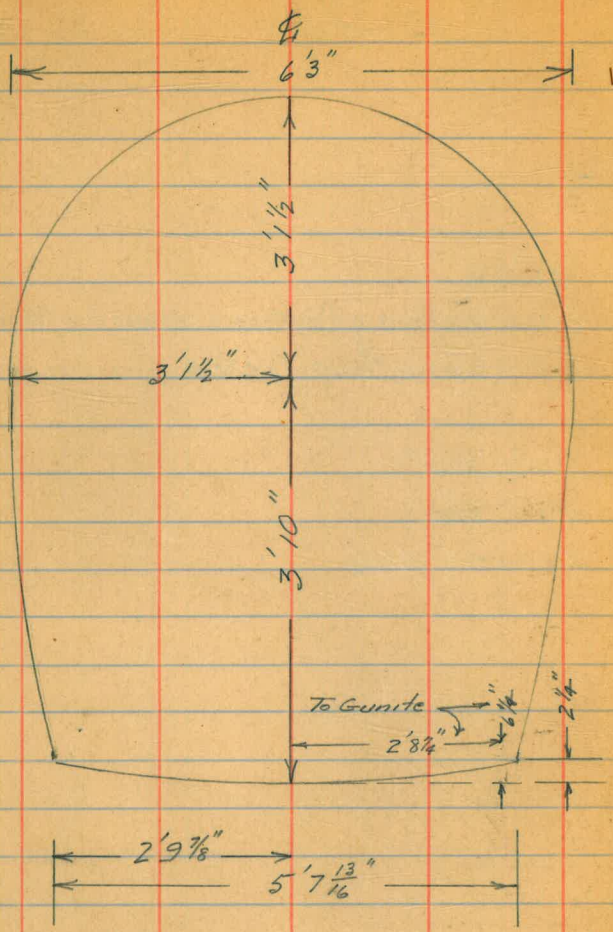 ℄
6'3"
3'1½"
3'1½"
3'10"
To Gunite
6¼"
2¼"
2'8¼"
2'9⅞"
5'7 13/16"